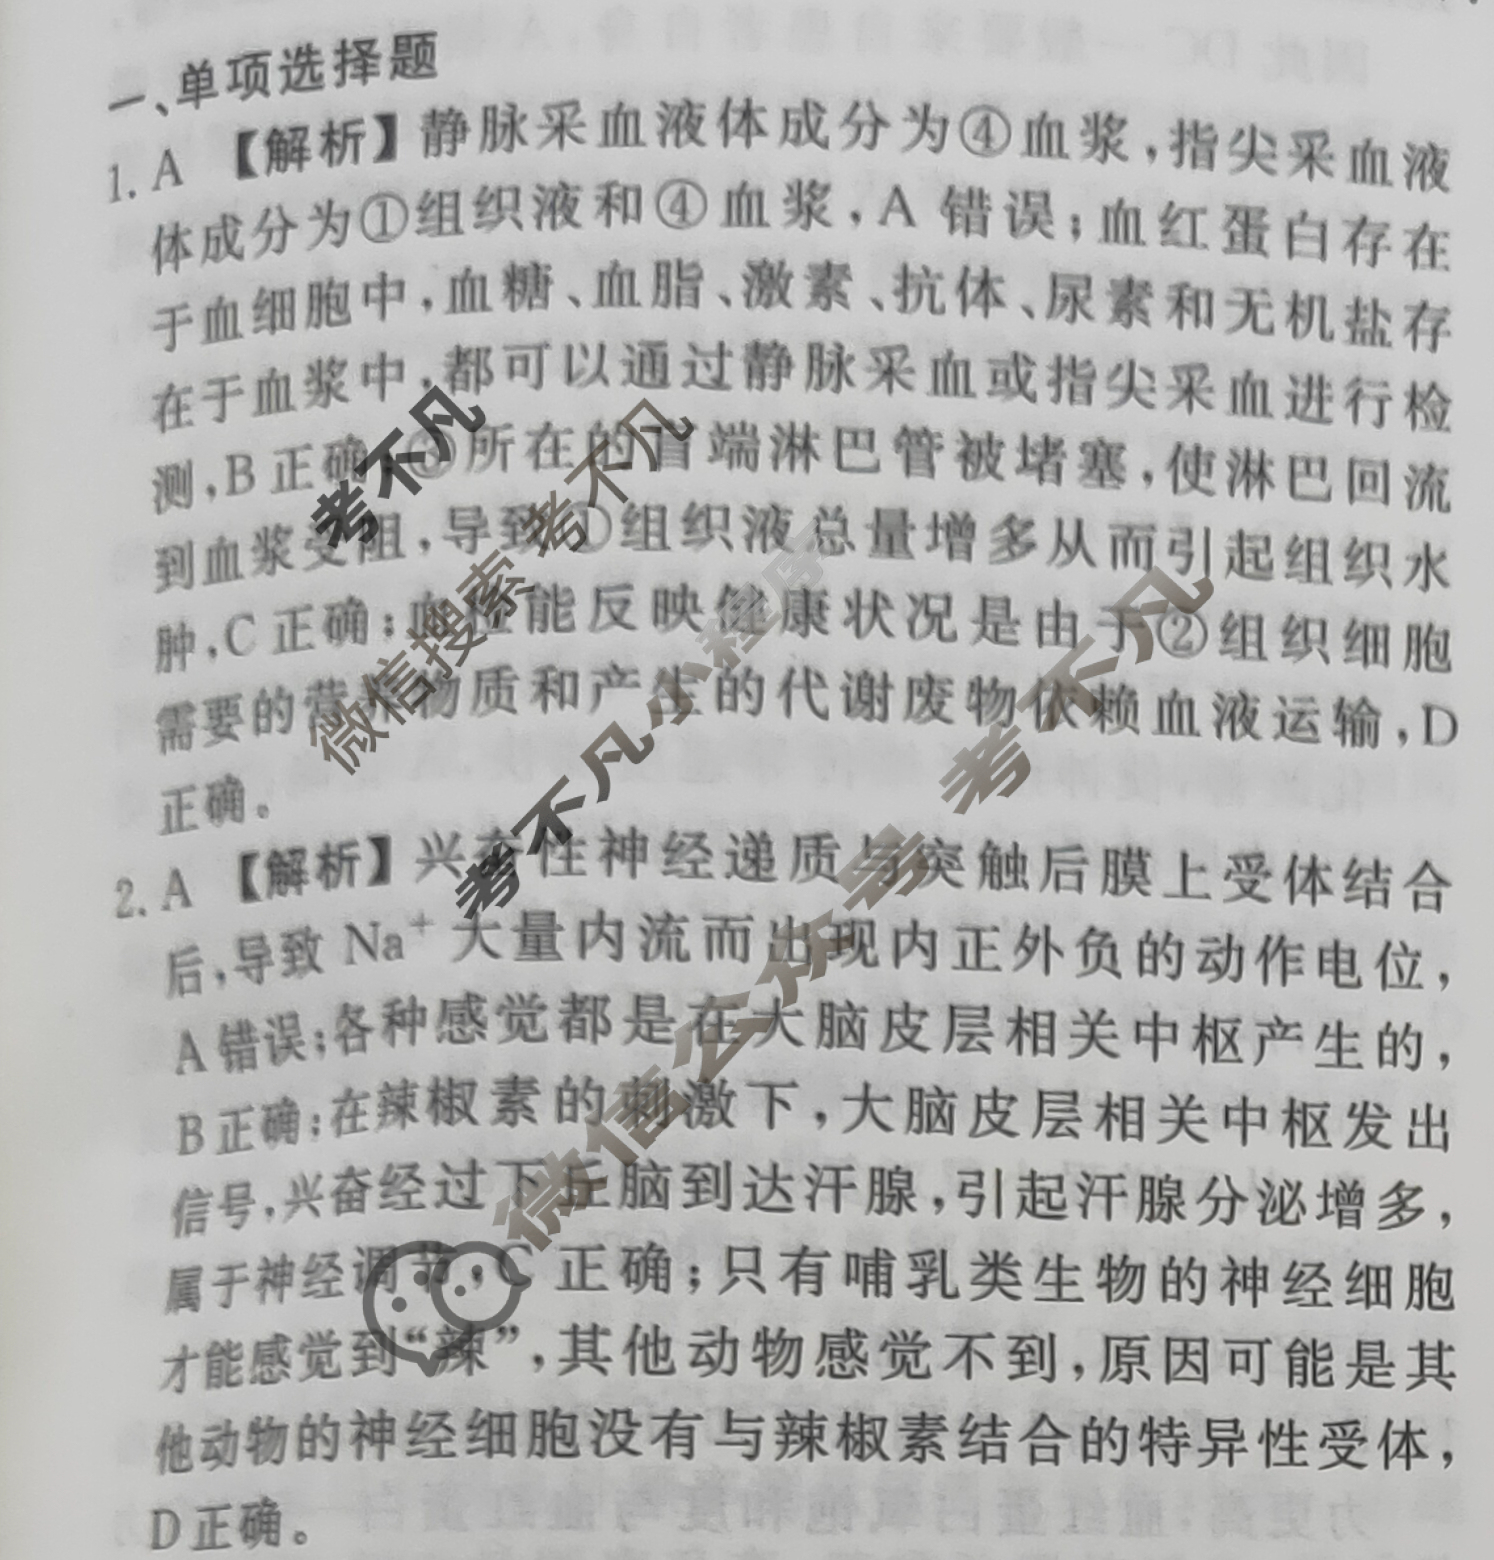 一、单项选择题
1. A 【解析】静脉采血液体成分为④血浆,指尖采血液
体成分为①组织液和④血浆,A 错误;血红蛋白存在
于血细胞中,血糖、血脂、激素、抗体、尿素和无机盐存
在于血浆中,都可以通过静脉采血或指尖采血进行检
测,B正确;③所在的盲端淋巴管被堵塞,使淋巴回流
到血浆受阻,导致①组织液总量增多从而引起组织水
肿,C正确;血检能反映健康状况是由于②组织细胞
需要的营养物质和产生的代谢废物依赖血液运输,D
正确。
2. A 【解析】兴奋性神经递质与突触后膜上受体结合
后,导致 Na⁺大量内流而出现内正外负的动作电位,
A错误;各种感觉都是在大脑皮层相关中枢产生的,
B正确;在辣椒素的刺激下,大脑皮层相关中枢发出
信号,兴奋经过下丘脑到达汗腺,引起汗腺分泌增多,
属于神经调节,C正确;只有哺乳类生物的神经细胞
才能感觉到“辣”,其他动物感觉不到,原因可能是其
他动物的神经细胞没有与辣椒素结合的特异性受体,
D正确。
考不凡
微信搜索 考不凡
考不凡小程序
微信公众号 考不凡